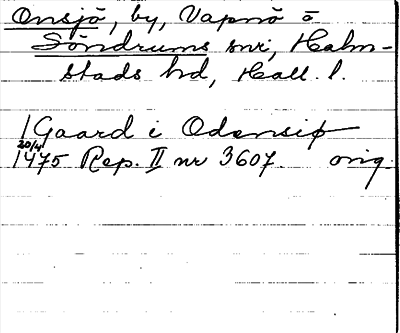 Onsjö, by, Vapnö o
Söndrums snr, Halm-
stads hd, Hall. l.
1 Gaard i Odensiø
20/4
1475 Rep. II nr 3607. orig.